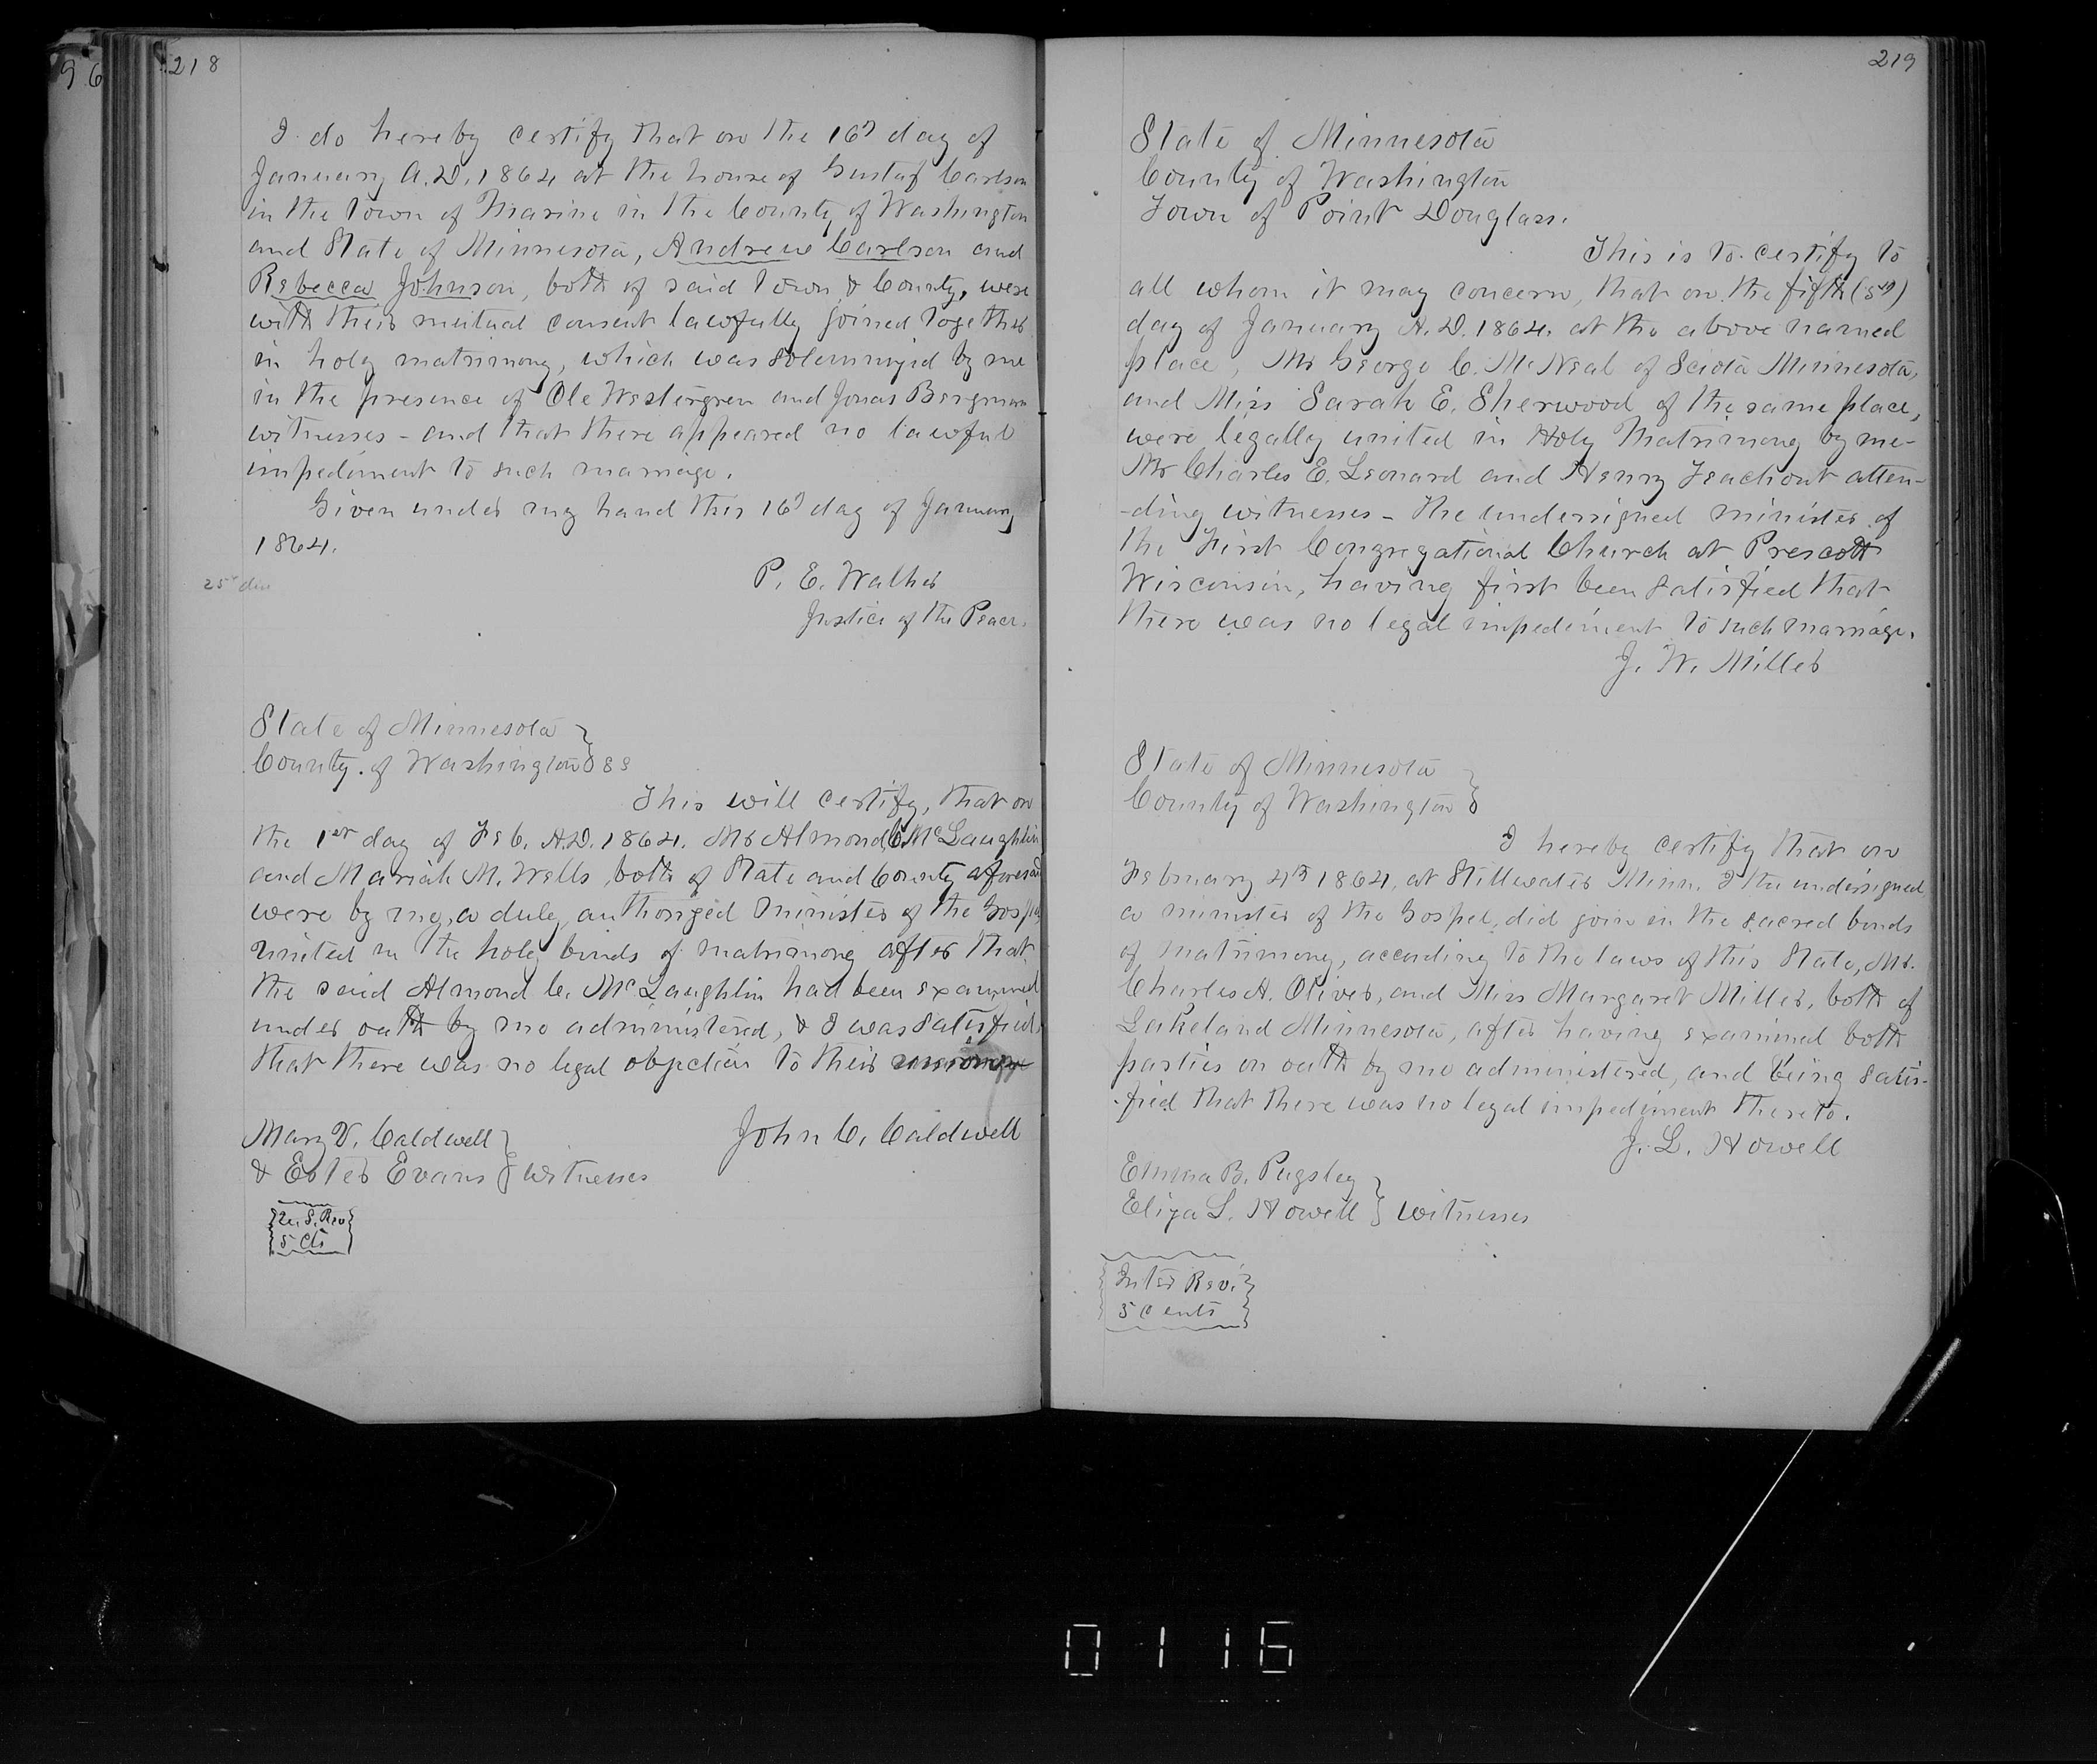 96
218
I do hereby certify that on the 16th day of
January A.D. 1864 at the house of Gustaf Carlson
in the Town of Marine in the County of Washington
and State of Minnesota, Andrew Carlson and
Rebecca Johnson, both of said Town & County, were
with their mutual consent lawfully joined together
in holy matrimony, which was solemnized by me
in the presence of Ole Westergren and Jonas Bergman
witnesses - and that there appeared no lawful
impediment to such marriage.
Given under my hand this 16th day of January
1864.
25c due
P. E. Walker
Justice of the Peace.
State of Minnesota }
County of Washington } SS
This will certify, that on
the 1st day of Feb. A.D. 1864. Mr Almond C. McLaughlin
and Mariah M. Wells, both of State and County aforesaid
were by me, a duly authorized minister of the Gospel,
united in the holy binds of matrimony after that
the said Almond C. McLaughlin had been examined
under oath by me administered, & I was satisfied
that there was no legal objection to their union
John C. Caldwell
Mary V. Caldwell }
& Ester Evans } witnesses
5 Cts
219
State of Minnesota
County of Washington
Town of Point Douglass.
This is to certify to
all whom it may concern, that on the fifth (5th)
day of January A.D. 1864. at the above named
place, Mr George C. McNeal of Sciota Minnesota,
and Miss Sarah E. Sherwood of the same place,
were legally united in Holy Matrimony by me-
Mr Charles E. Leonard and Henry Teachout atten-
-ding witnesses - The undersigned minister of
the First Congregational Church at Prescott
Wisconsin, having first been satisfied that
there was no legal impediment to such marriage.
J. W. Miller
State of Minnesota }
County of Washington }
I hereby certify that on
February 4th 1864, at Stillwater Minn. I the undersigned,
a minister of the Gospel, did join in the sacred binds
of matrimony, according to the laws of this State, Mr.
Charles A. Oliver, and Miss Margaret Miller, both of
Lakeland Minnesota, after having examined both
parties on oath by me administered, and being satis-
-fied that there was no legal impediment thereto.
J. L. Howell
Emma B. Pugsley }
Eliza L. Howell } witnesses
Inter Rev.
5 Cents
0116